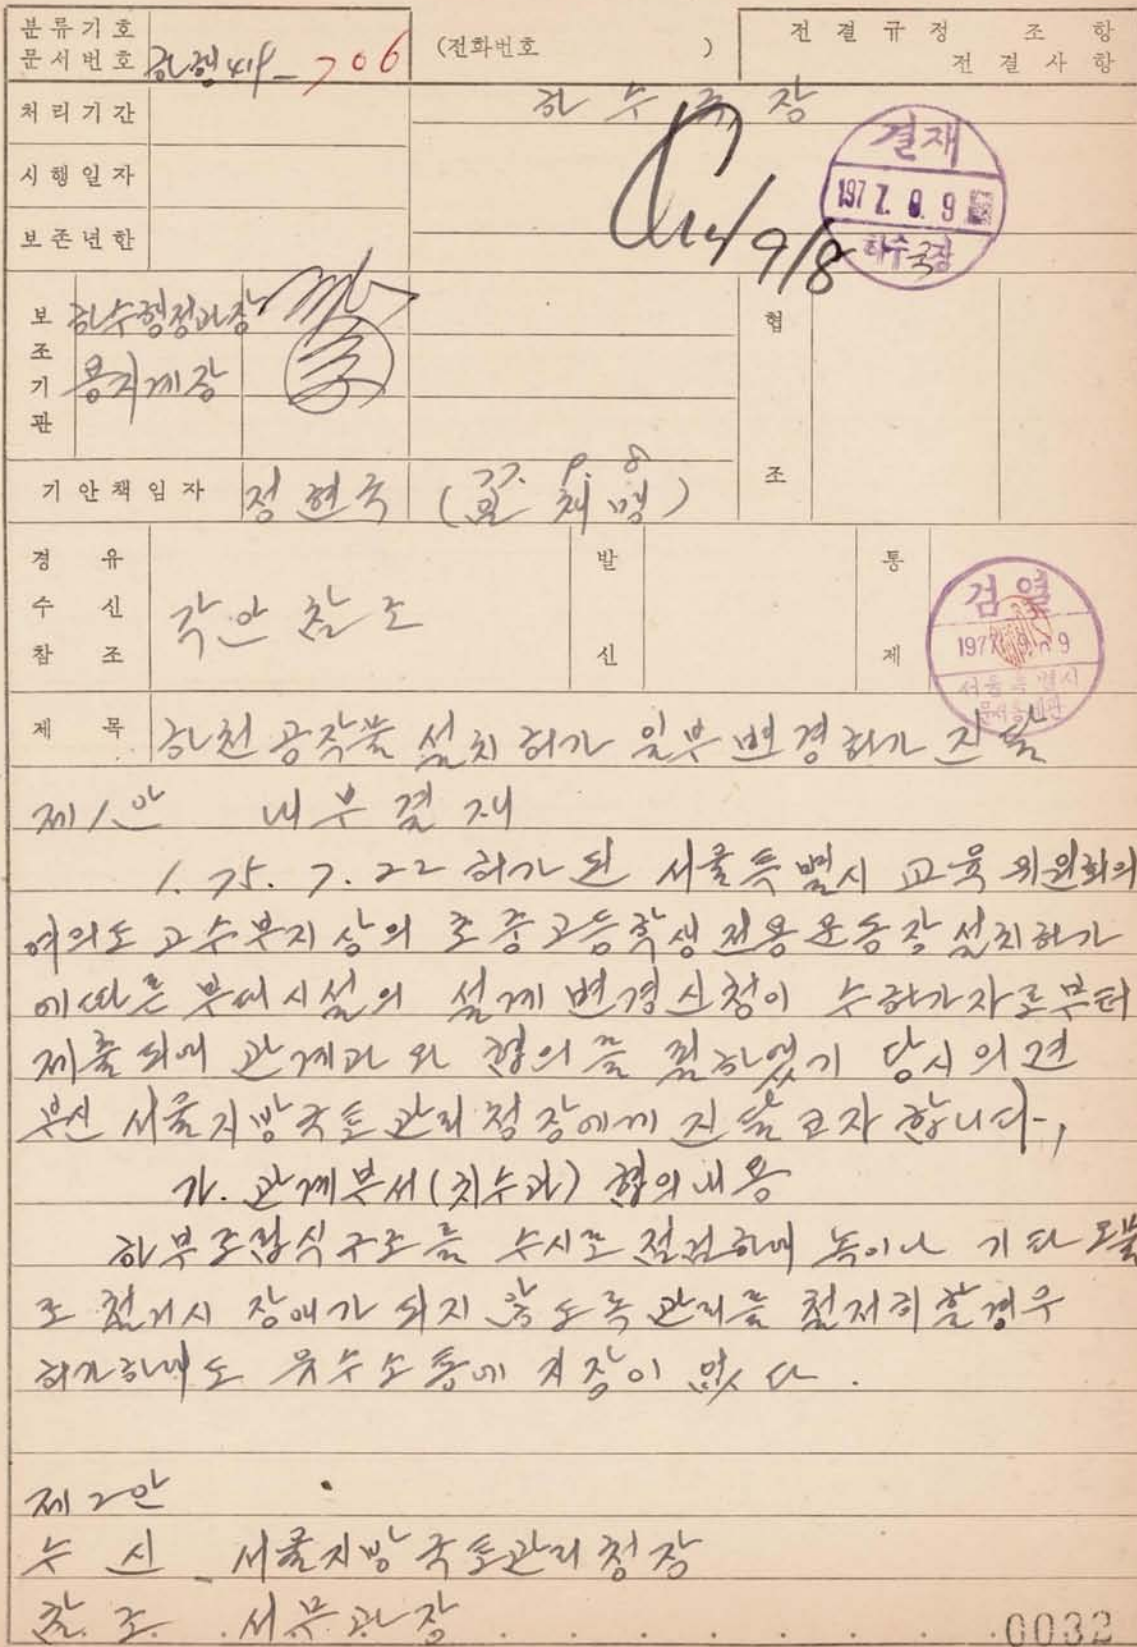 분류기호
문서번호 하행 415-706
(전화번호 )
전결규정 조 항
전결사항
처리기간
하수국장
시행일자
보존년한
9/8
결재
1977. 9. 9
하수국장
보조기관
하수행정과장
용지계장
협조
기안책임자 정현국 (77. 9. 8)
경유
수신
참조
각안 참조
발신
통제
검열
1977. 9. 9
서울특별시
문서통제관
제목 하천 공작물 설치 허가 일부 변경허가 진달
제1안 내부결재
1. 75. 7. 22 허가된 서울특별시 교육위원회의
여의도 고수부지상의 초중고등학생 전용운동장 설치허가
에 따른 부대시설의 설계변경신청이 수허가자로부터
제출되어 관계과와 협의를 필하였기 당시의견
부신 서울지방국토관리청장에게 진달코자 합니다.
가. 관계부서(치수과) 협의내용
하부조립식구조를 수시로 점검하여 녹이나 기타 오물
로 철거시 장애가 되지 않도록 관리를 철저히 할 경우
허가하여도 유수소통에 지장이 없다.
제2안
수신 서울지방국토관리청장
참조 서무과장
0032